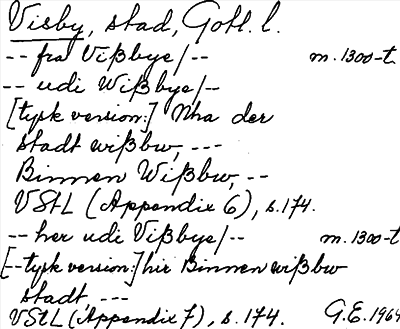 Visby, stad, Gotl. l.
-- fra Vißbye/-- m. 1300-t
-- udi Wißbye/--
[tysk version:] Nha der
stadt wißbw, ---
Binnen Wißbw, --
VStL (Appendix 6), s. 174.
-- her udi Vißbye/-- m. 1300-t
[-- tysk version:] hir Binnen wißbw
stadt ---
VStL (Appendix 7), s. 174. G.E. 1964